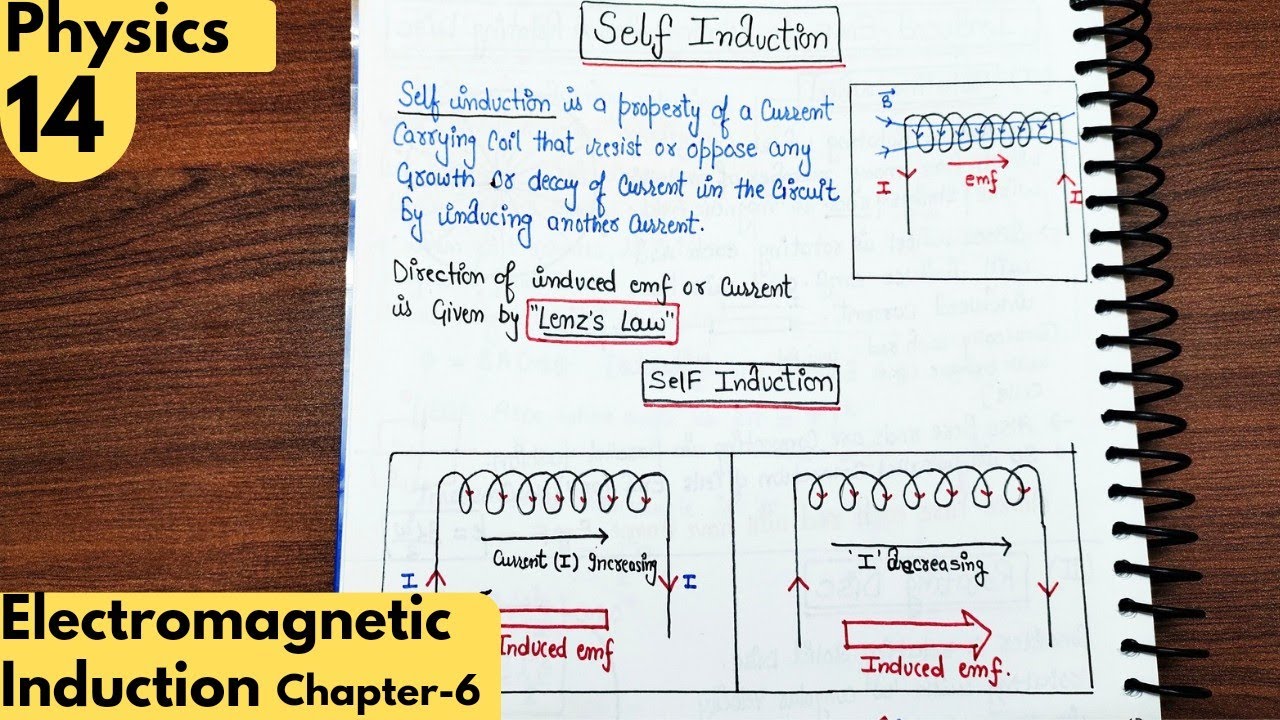 Physics
14
Self Induction
Self induction is a property of a Current
Carrying Coil that resist or oppose any
Growth or decay of Current in the Circuit
by inducing another Current.
B
I
emf
I
Direction of induced emf or Current
is Given by "Lenz's Law"
Self Induction
Current (I) Increasing
I
I
Induced emf
'I' decreasing
Induced emf.
Electromagnetic
Induction Chapter-6